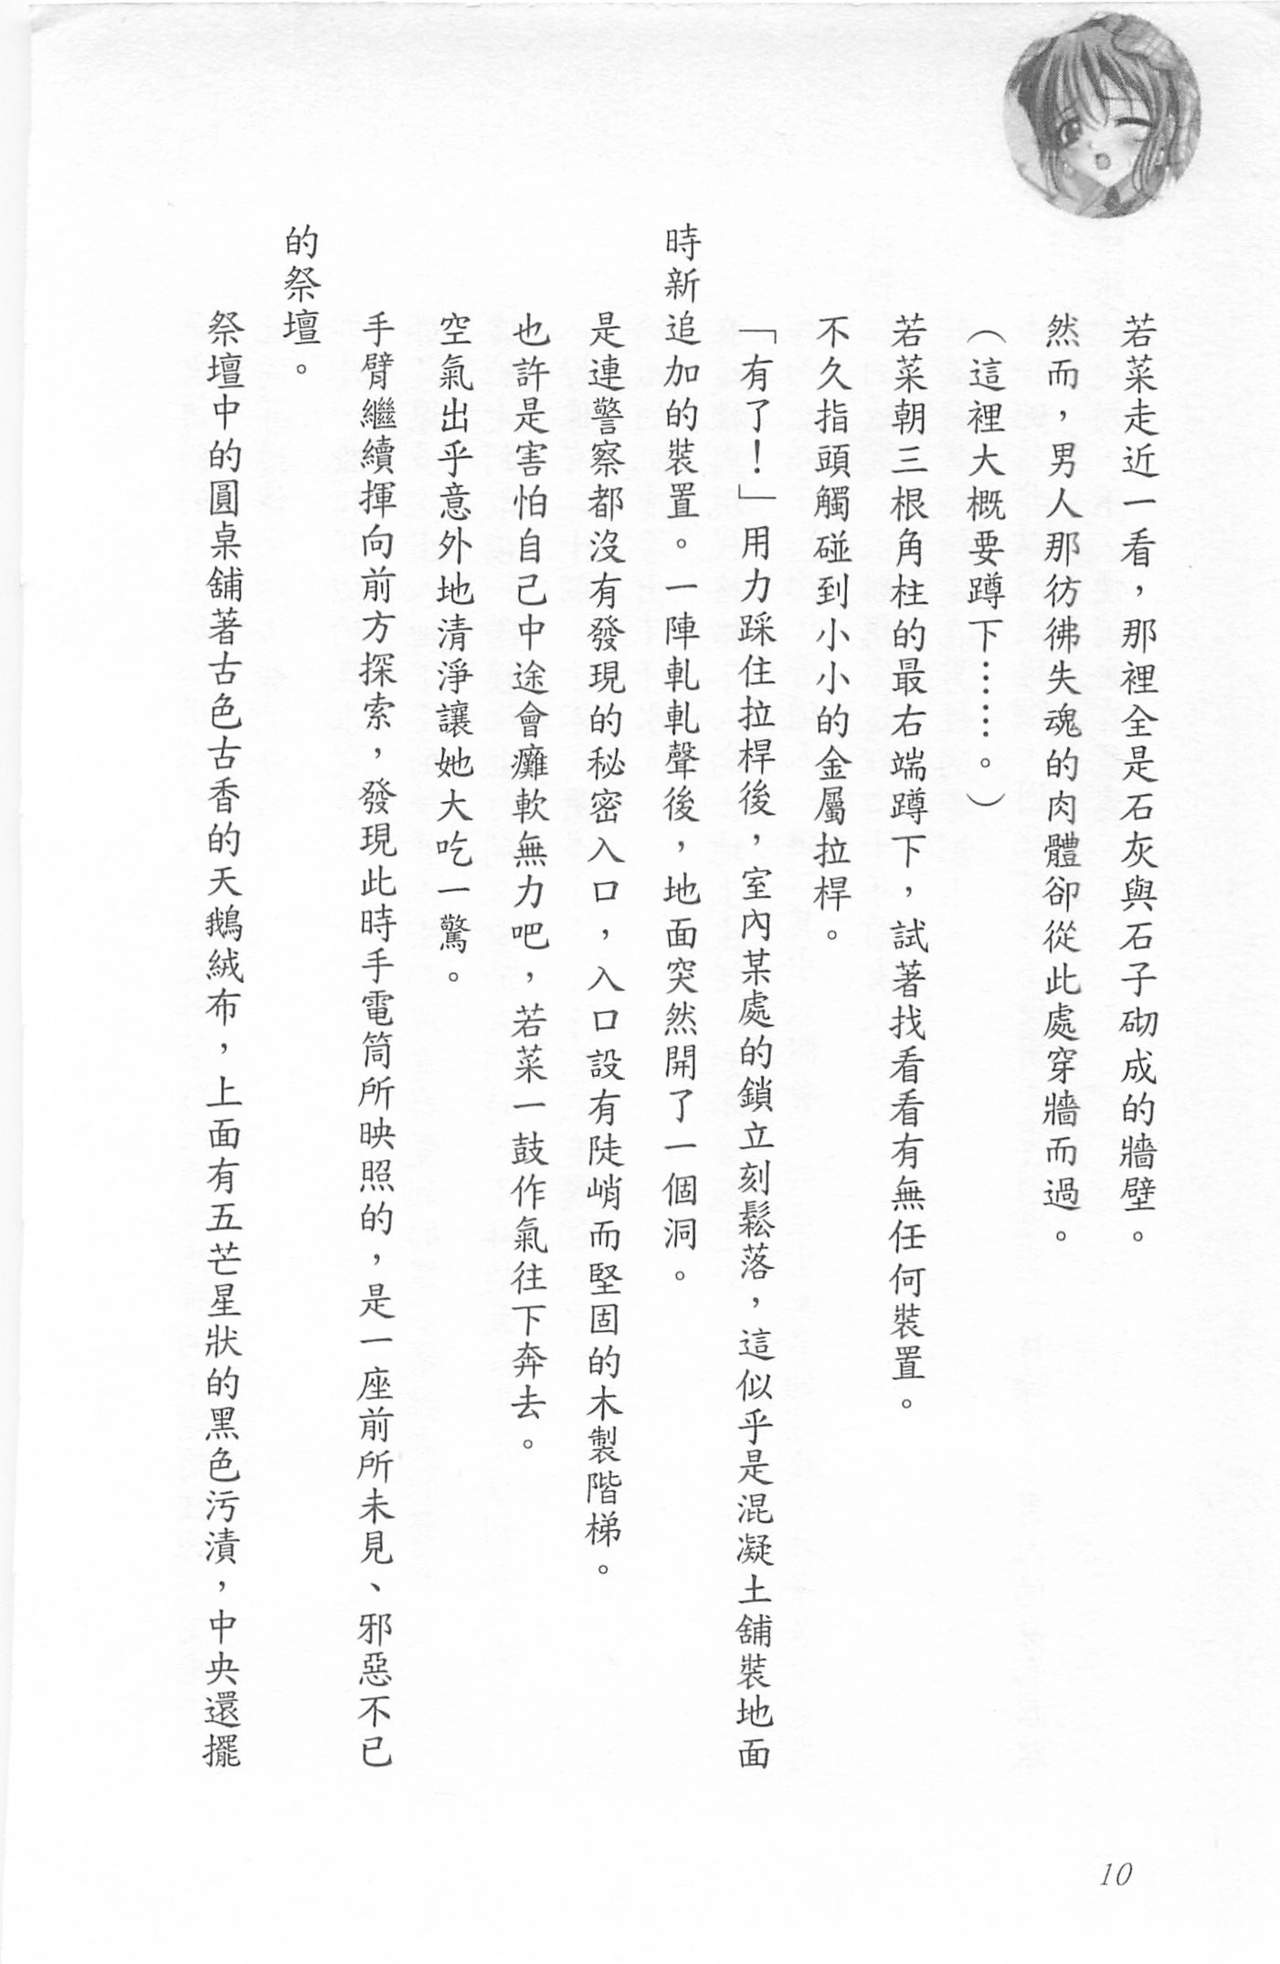 若菜走近一看，那裡全是石灰與石子砌成的牆壁。
然而，男人那彷彿失魂的肉體卻從此處穿牆而過。
（這裡大概要蹲下……。）
若菜朝三根角柱的最右端蹲下，試著找看看有無任何裝置。
不久指頭觸碰到小小的金屬拉桿。
「有了！」用力踩住拉桿後，室內某處的鎖立刻鬆落，這似乎是混凝土舖裝地面
時新追加的裝置。一陣軋軋聲後，地面突然開了一個洞。
是連警察都沒有發現的秘密入口，入口設有陡峭而堅固的木製階梯。
也許是害怕自己中途會癱軟無力吧，若菜一鼓作氣往下奔去。
空氣出乎意外地清淨讓她大吃一驚。
手臂繼續揮向前方探索，發現此時手電筒所映照的，是一座前所未見、邪惡不已
的祭壇。
祭壇中的圓桌舖著古色古香的天鵝絨布，上面有五芒星狀的黑色污漬，中央還擺
10